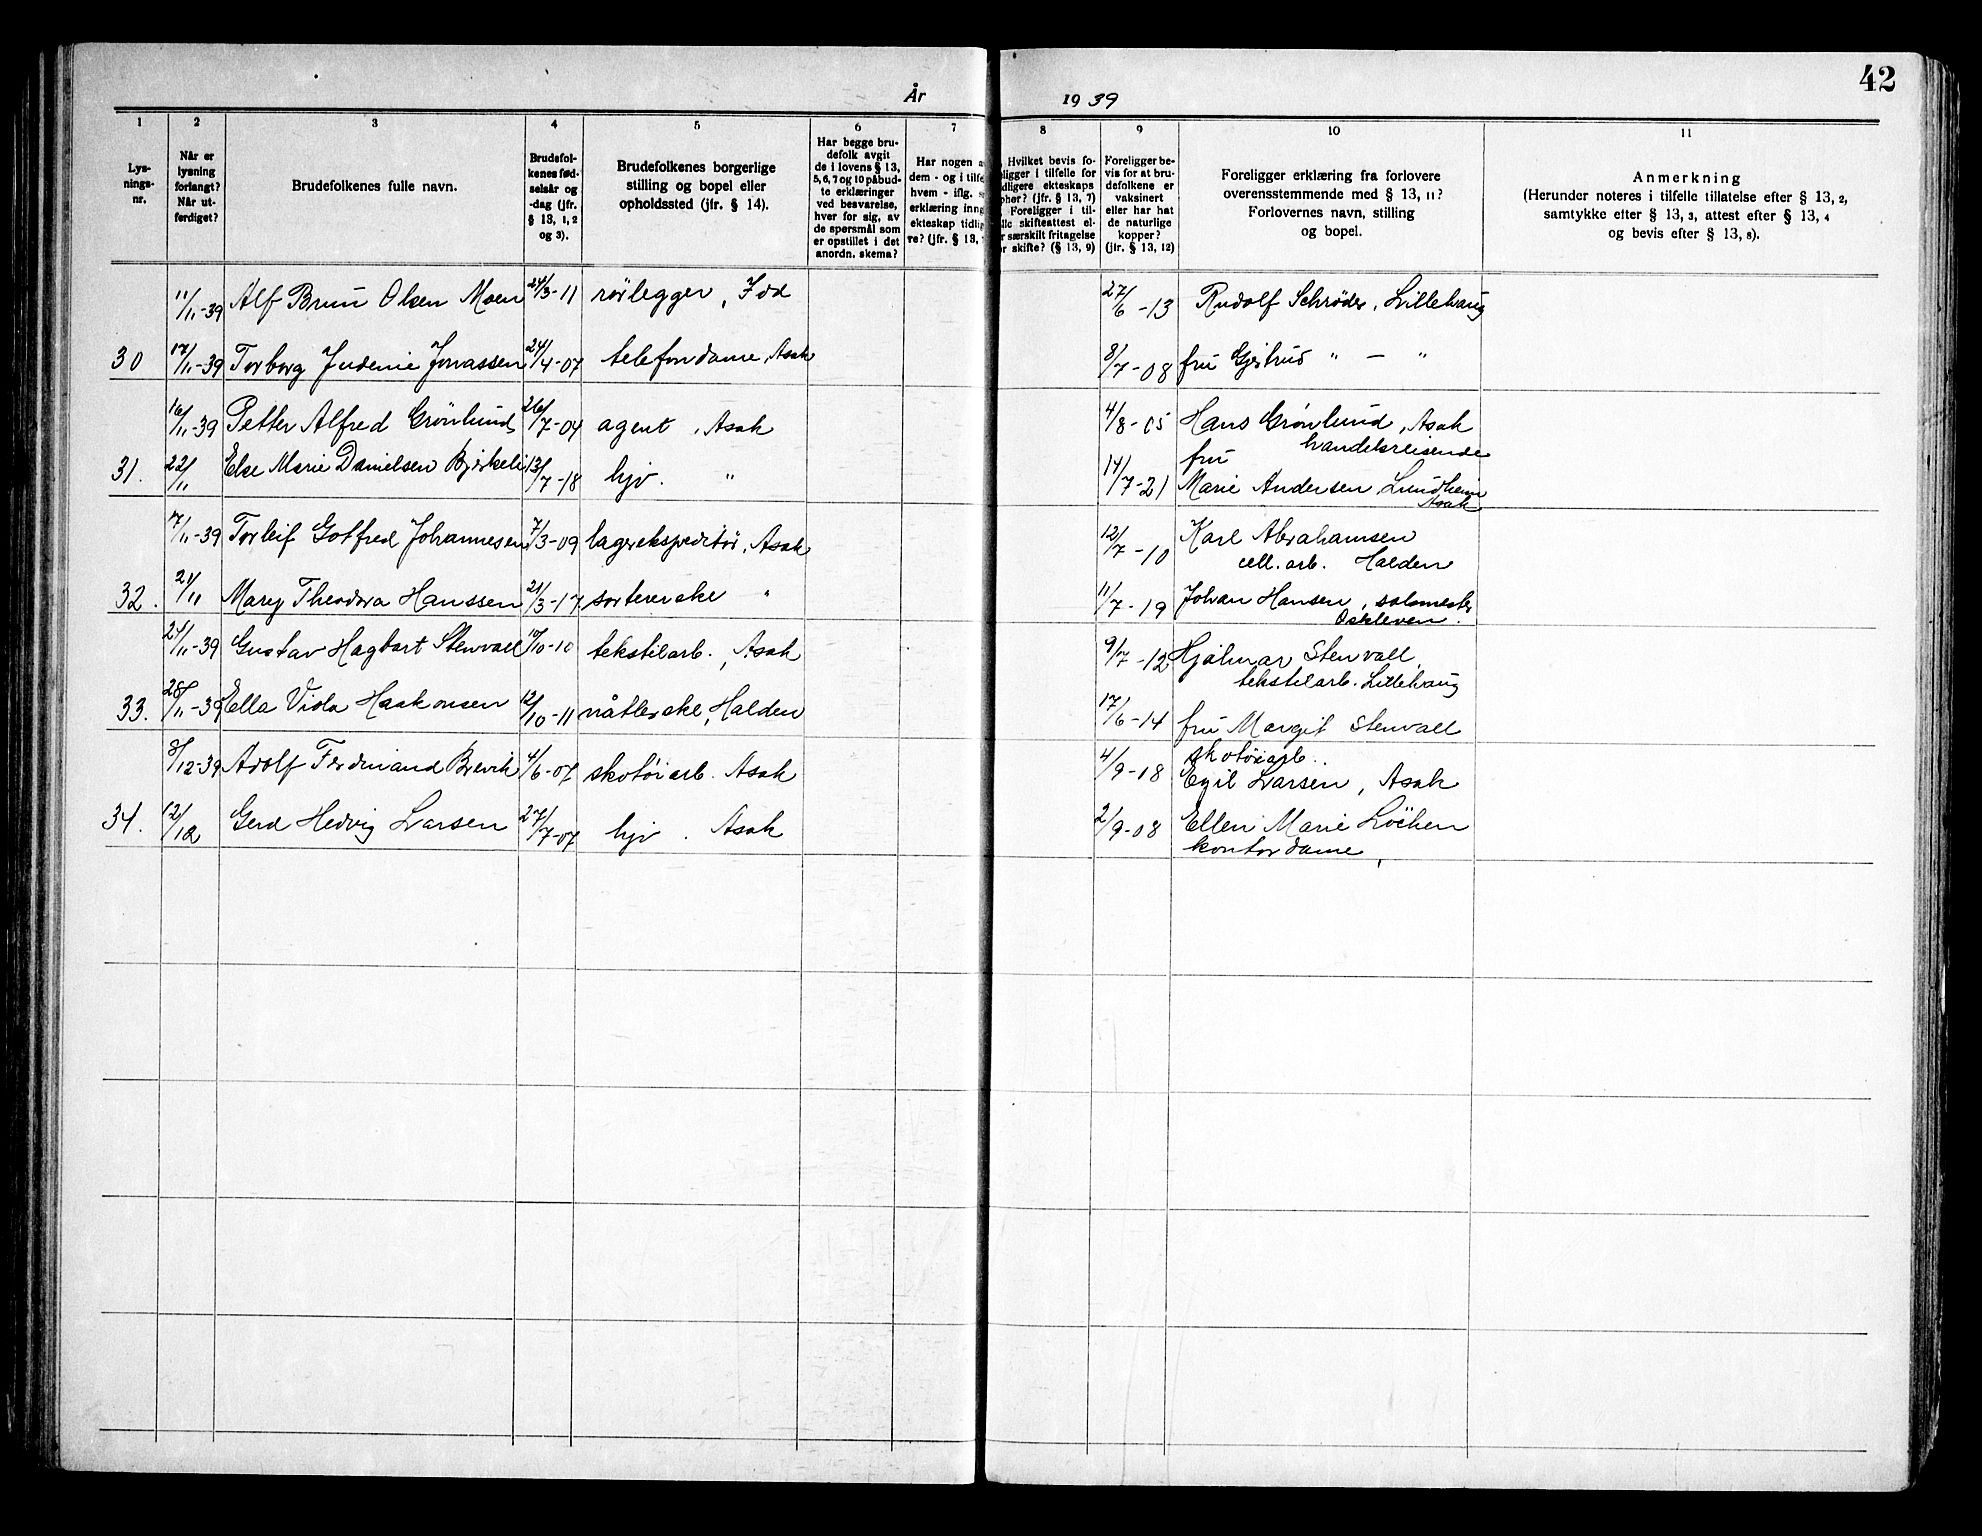 42
År 1939
1 2 3 4 5 6 7 8 9 10 11
Lys-
nings-
nr.
Når er
lysning
forlangt?
Når ut-
ferdiget?
Brudefolkenes fulle navn.
Brudefol-
kenes fød-
selsår og
-dag (jfr.
§ 13, 1, 2
og 3).
Brudefolkenes borgerlige
stilling og bopel eller
opholdssted (jfr. § 14).
Har begge bru-
defolk avgit
de i lovens § 13,
5, 6, 7 og 10 påbud-
te erklæringer
ved besvarelse,
hver for sig, av
de spørsmål som
er opstillet i det
anordn. skema?
Har nogen a
dem - og i tilfe
hvem - iflg. s
erklæring inng
ekteskap tidlig
re? (jfr. § 13,
Hvilket bevis fo-
religger i tilfelle for
tidligere ekteskaps
opher? (jfr. § 13, 7)
Foreligger i til-
lle skifteattest el-
r særskilt fritagelse
or skifte? (§ 13, 9)
Foreligger be-
vis for at bru-
defolkene er
vaksinert
eller har hat
de naturlige
kopper?
(jfr. § 13, 12)
Foreligger erklæring fra forlovere
overensstemmende med § 13, 11?
Forlovernes navn, stilling
og bopel.
Anmerkning
(Herunder noteres i tilfelle tillatelse efter § 13, 2,
samtykke efter § 13, 3, attest efter § 13, 4
og bevis efter § 13, 8).
11/11-39 Alf Brun Olsen Moen 24/3-11 rørlegger, Idd 27/6-13 Rudolf Schrøder, Lillehaug
30 17/11-39 Torborg Judenie Jonassen 24/4-07 telefondame, Asak 8/7-08 fru Gjertrud " — "
16/11-39 Petter Alfred Grønlund 26/7-04 agent, Asak 4/8-05 Hans Grønlund, Asak
handelsreisende
31. 22/11 Else Marie Danielsen Bjerkeli 13/7-18 hjv. " 14/7-21 fru
Marie Andersen, Lundheim
Asak
7/11-39 Torleif Gotfred Johannesen 7/3-09 lagerekspeditør, Asak 12/7-10 Karl Abrahamsen
cell. arb. Halden
32. 21/11 Mary Theodora Hanssen 21/3-17 sorterерske " 11/7-19 Johan Hansen, salmester
Oskleven.
24/11-39 Gustav Hagbart Stenvall 10/10-10 tekstilarb., Asak 9/7-12 Hjalmar Stenvall,
tekstilarb. Lillehaug
33. 28/11-39 Ella Viola Haakonsen 12/10-11 nåtlerske, Halden 17/6-14 fru Margit Stenvall
8/12-39 Adolf Ferdinand Brevik 4/6-07 skotøiarb. Asak 4/9-08 skotøiarb..
Egil Larsen, Asak
34. 12/12 Gerd Hedvig Larsen 27/7-07 hjv. Asak 2/9-08 Ellen Marie Löchen
kontordame,